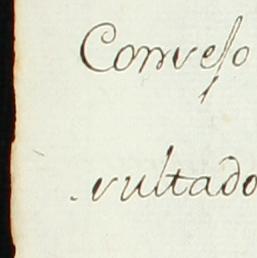 Conveſo
.vultado